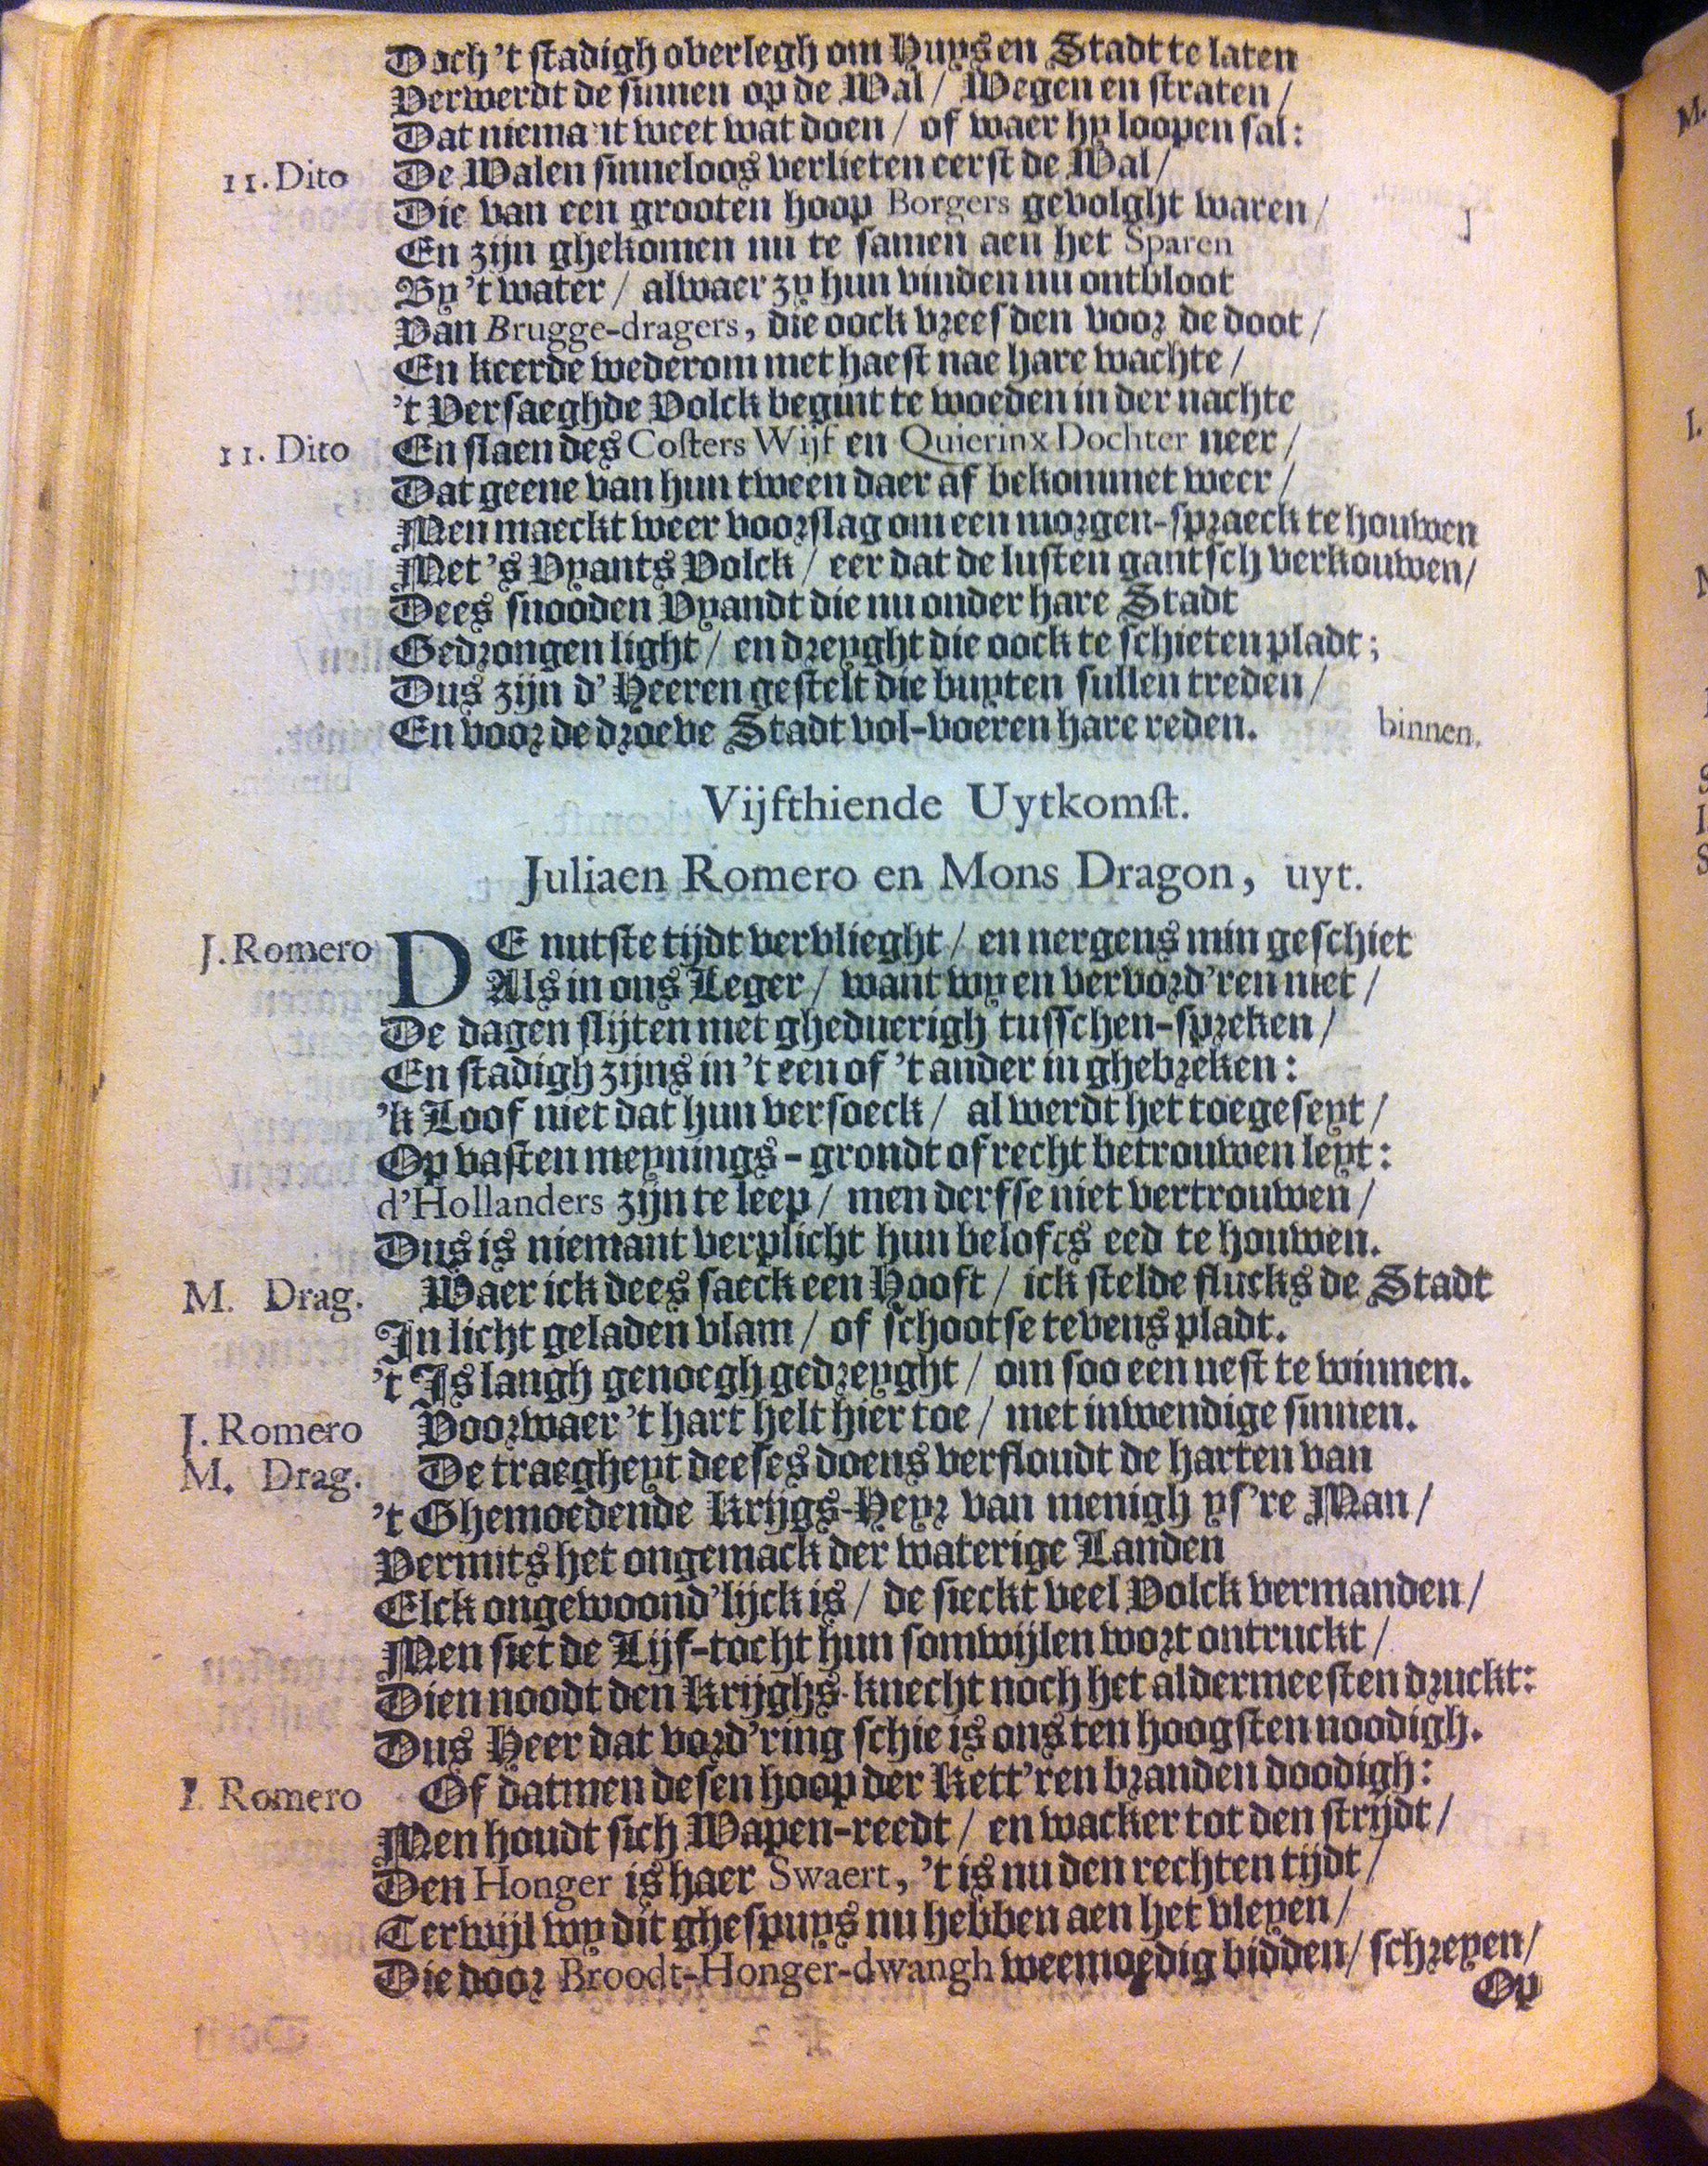 Doch 't stadigh overlegh om Huys en Stadt te laten
Verwerdt de sinnen op de Wal / Wegen en straten /
Dat niemant weet wat doen / of waer hy loopen sal:
11. Dito De Walen sinneloos verlieten eerst de Wal /
Die van een grooten hoop Borgers gevolght waren /
En zijn ghekomen nu te samen aen het Sparen
By 't water / alwaer zy hun vinden nu ontbloot
Van Brugge-dragers, die oock vreesden voor de doot /
En keerde wederom met haest nae hare wachte /
't Versaeghde Volck begint te woeden in der nachte
11. Dito En slaen des Costers Wijf en Quierinx Dochter neer /
Dat geene van hun tween daer af bekommet weer /
Men maeckt weer voorslag om een morgen-spraeck te houwen
Met 's Vyants Volck / eer dat de lusten gantsch verkouwen /
Dees snooden Vyandt die nu onder hare Stadt
Gedrongen light / en dreyght die oock te schieten pladt;
Dus zijn d' Heeren gestelt die buyten sullen treden /
En voor de droeve Stadt vol-voeren hare reden. binnen.
Vijfthiende Uytkomst.
Juliaen Romero en Mons Dragon, uyt.
J. Romero DE nutste tijdt vervlieght / en nergens min geschiet
Als in ons Leger / want wy en vervord'ren niet /
De dagen slijten met gheduerigh tusschen-spreken /
En stadigh zijns in 't een of 't ander in ghebreken:
'k Loof niet dat hun versoeck / al werdt het toegeseyt /
Op vasten meynings-grondt of recht betrouwen leyt:
d'Hollanders zijn te leep / men derfse niet vertrouwen /
Dus is niemant verplicht hun belofts eed te houwen.
M. Drag. Waer ick dees saeck een Hooft / ick stelde flucks de Stadt
In licht geladen vlam / of schootse tevens pladt.
't Is langh genoegh gedreyght / om soo een nest te winnen.
J. Romero Voorwaer 't hart helt hier toe / met inwendige sinnen.
M. Drag. De traegheyt deeses doens verfloudt de harten van
't Ghemoedende Krijgs-Heyr van menigh ys're Man /
Vermits het ongemack der waterige Landen
Elck ongewoond'lijck is / de sieckt veel Volck vermanden /
Men siet de Lijf-tocht hun somwijlen wort ontruckt /
Dien noodt den Krijghs-knecht noch het aldermeesten druckt:
Dus Heer dat vord'ring schie is ons ten hoogsten noodigh.
J. Romero Of datmen desen hoop der Kett'ren branden doodigh:
Men houdt sich Wapen-reedt / en wacker tot den strijdt /
Den Honger is haer Swaert, 't is nu den rechten tijdt /
Terwijl wy dit ghespuys nu hebben aen het vleyen /
Die door Broodt-Honger-dwangh weemoedig bidden / schreyen /
Op